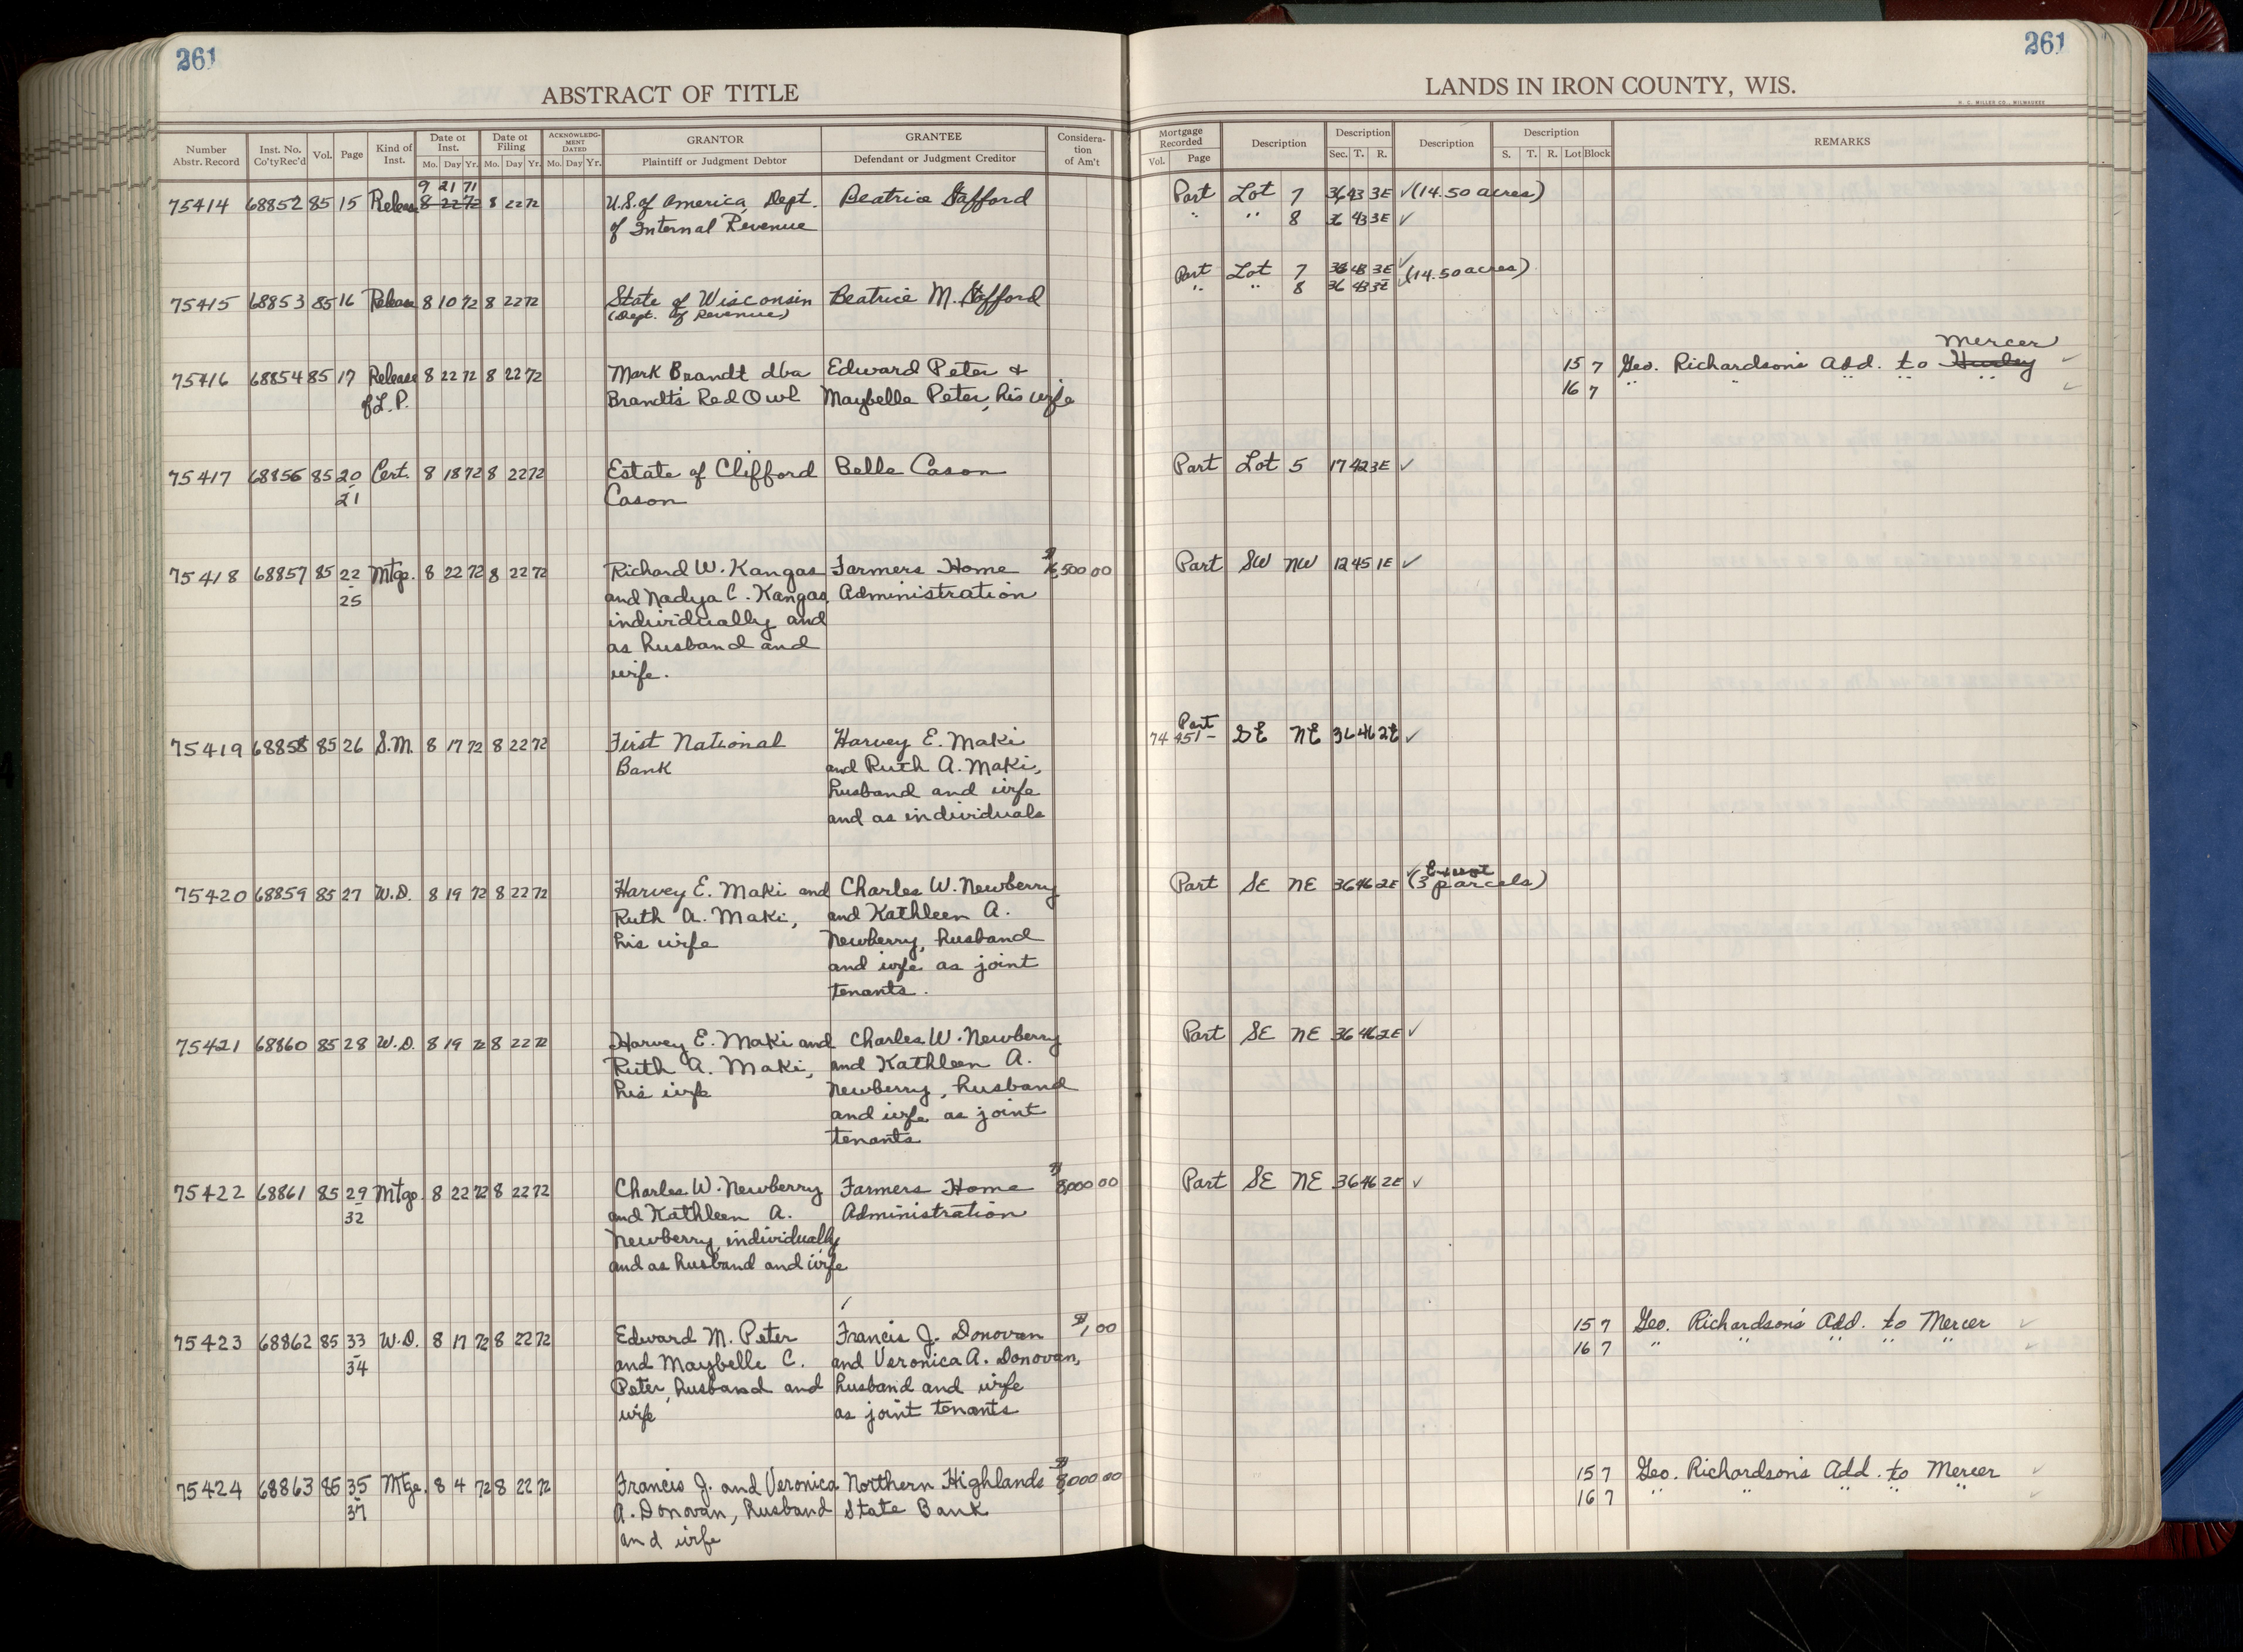 261
261
ABSTRACT OF TITLE
LANDS IN IRON COUNTY, WIS.
H. C. MILLER CO., MILWAUKEE
Number Abstr. Record | Inst. No. Co'ty Rec'd | Vol. | Page | Kind of Inst. | Date of Inst. Mo. Day Yr. | Date of Filing Mo. Day Yr. | ACKNOWLEDGMENT DATED Mo. Day Yr. | GRANTOR Plaintiff or Judgment Debtor | GRANTEE Defendant or Judgment Creditor | Consideration of Am't | Mortgage Recorded Vol. Page | Description | Description Sec. T. R. | Description | Description S. T. R. Lot Block | REMARKS
9 21 71
75414 68852 85 15 Release 8 22 72 8 22 72 U.S. of America, Dept. Beatrice Stafford Part Lot 7 36 43 3E ✓ (14.50 acres)
of Internal Revenue " " 8 36 43 3E ✓
Part Lot 7 36 43 3E ✓ (14.50 acres)
" " 8 36 43 3E ✓
75415 68853 85 16 Release 8 10 72 8 22 72 State of Wisconsin Beatrice M. Stafford
(Dept. of Revenue)
Mercer
75416 68854 85 17 Release 8 22 72 8 22 72 Mark Brandt dba Edward Peter & 15 7 Geo. Richardson's Add. to Hurley ✓
of L.P. Brandt's Red Owl Maybelle Peter, his wife 16 7 " " " " " ✓
75417 68856 85 20 Cert. 8 18 72 8 22 72 Estate of Clifford Belle Cason Part Lot 5 17 42 3E ✓
- 21 Cason
75418 68857 85 22 Mtge. 8 22 72 8 22 72 Richard W. Kangas Farmers Home $ ,500 00 Part SW NW 12 45 1E ✓
- 25 and Nadya C. Kangas, Administration
individually and
as husband and
wife.
Part
75419 68858 85 26 S.M. 8 17 72 8 22 72 First National Harvey E. Maki 74 451- SE NE 36 46 2E ✓
Bank and Ruth A. Maki,
husband and wife
and as individuals
✓ Except
75420 68859 85 27 W.D. 8 19 72 8 22 72 Harvey E. Maki and Charles W. Newberry Part SE NE 36 46 2E (3 parcels)
Ruth A. Maki, and Kathleen A.
his wife Newberry, husband
and wife as joint
tenants.
75421 68860 85 28 W.D. 8 19 72 8 22 72 Harvey E. Maki and Charles W. Newberry Part SE NE 36 46 2E ✓
Ruth A. Maki, and Kathleen A.
his wife Newberry, husband
and wife as joint
tenants
75422 68861 85 29 Mtge. 8 22 72 8 22 72 Charles W. Newberry Farmers Home $ 8,000 00 Part SE NE 36 46 2E ✓
- 32 and Kathleen A. Administration
Newberry, individually
and as husband and wife
75423 68862 85 33 W.D. 8 17 72 8 22 72 Edward M. Peter Francis J. Donovan $ 1,00 15 7 Geo. Richardson's Add. to Mercer ✓
- 34 and Maybelle C. and Veronica A. Donovan, 16 7 " " " " " ✓
Peter, husband and husband and wife
wife as joint tenants
75424 68863 85 35 Mtge. 8 4 72 8 22 72 Francis J. and Veronica Northern Highlands $ 8,000 00 15 7 Geo. Richardson's Add. to Mercer ✓
- 37 A. Donovan, husband State Bank 16 7 " " " " " ✓
and wife